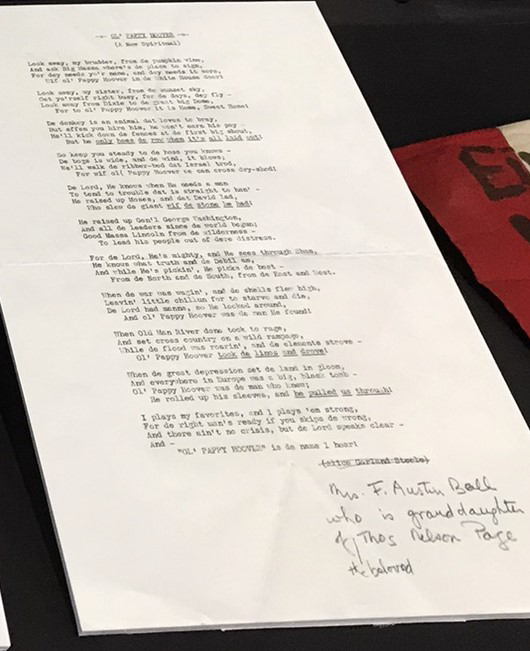 -o- OL' PAPPY HOOVER -o-
(A New Spiritual)
Look away, my brudder, from de pumpkin vine,
And ask Big Massa where's de place to sign,
For dey needs yo'r name, and dey needs it more,
Wif ol' Pappy Hoover in de White House door!
Look away, my sister, from de sunset sky,
Get yo'rself right busy, for de days, dey fly -
Look away from Dixie to de great big Dome,
For to ol' Pappy Hoover it is Home, Sweet Home!
De donkey is an animal dat loves to bray,
But affen you hire him, he won't earn his pay -
He'll kick down de fences at de first big shout,
But he only hoes de row when it's all laid out!
So keep you steady to de hoss you knows -
De boys is wide, and de wind, it blows;
We'll walk de ribber-bed dat Israel trod,
For wif ol' Pappy Hoover we can cross dry-shod!
De Lord, He knows when He needs a man
To tend to trouble dat is straight to han' -
He raised up Moses, and dat David lad,
Who slew de giant wif de stone he had!
He raised up Gen'l George Washington,
And all de leaders since de world begun;
Good Massa Lincoln from de wilderness -
To lead his people out of dere distress.
For de Lord, He's mighty, and He sees through Sham,
He knows what truth and de Debil am,
And while He's pickin', He picks de best -
From de North and de South, from de East and West.
When de war was wagin', and de shells flew high,
Leavin' little chillun for to starve and die,
De Lord had manna, so He looked around,
And ol' Pappy Hoover was de man He found!
When Old Man River done took to rage,
And set cross country on a wild rampage,
While de flood was roarin', and de elements strove -
Ol' Pappy Hoover took de lines and drove!
When de great depression set de land in gloom,
And everywhere in Europe was a big, black tomb -
Ol' Pappy Hoover was de man who knew;
He rolled up his sleeves, and he pulled us through!
I plays my favorites, and I plays 'em strong,
For de right man's ready if you skips de wrong,
And there ain't no crisis, but de Lord speaks clear -
And -
"OL' PAPPY HOOVER" is de name I hear!
(Alice Garland Steele)
Mrs. F. Austin Ball
who is granddaughter
of Thos Nelson Page
the beloved